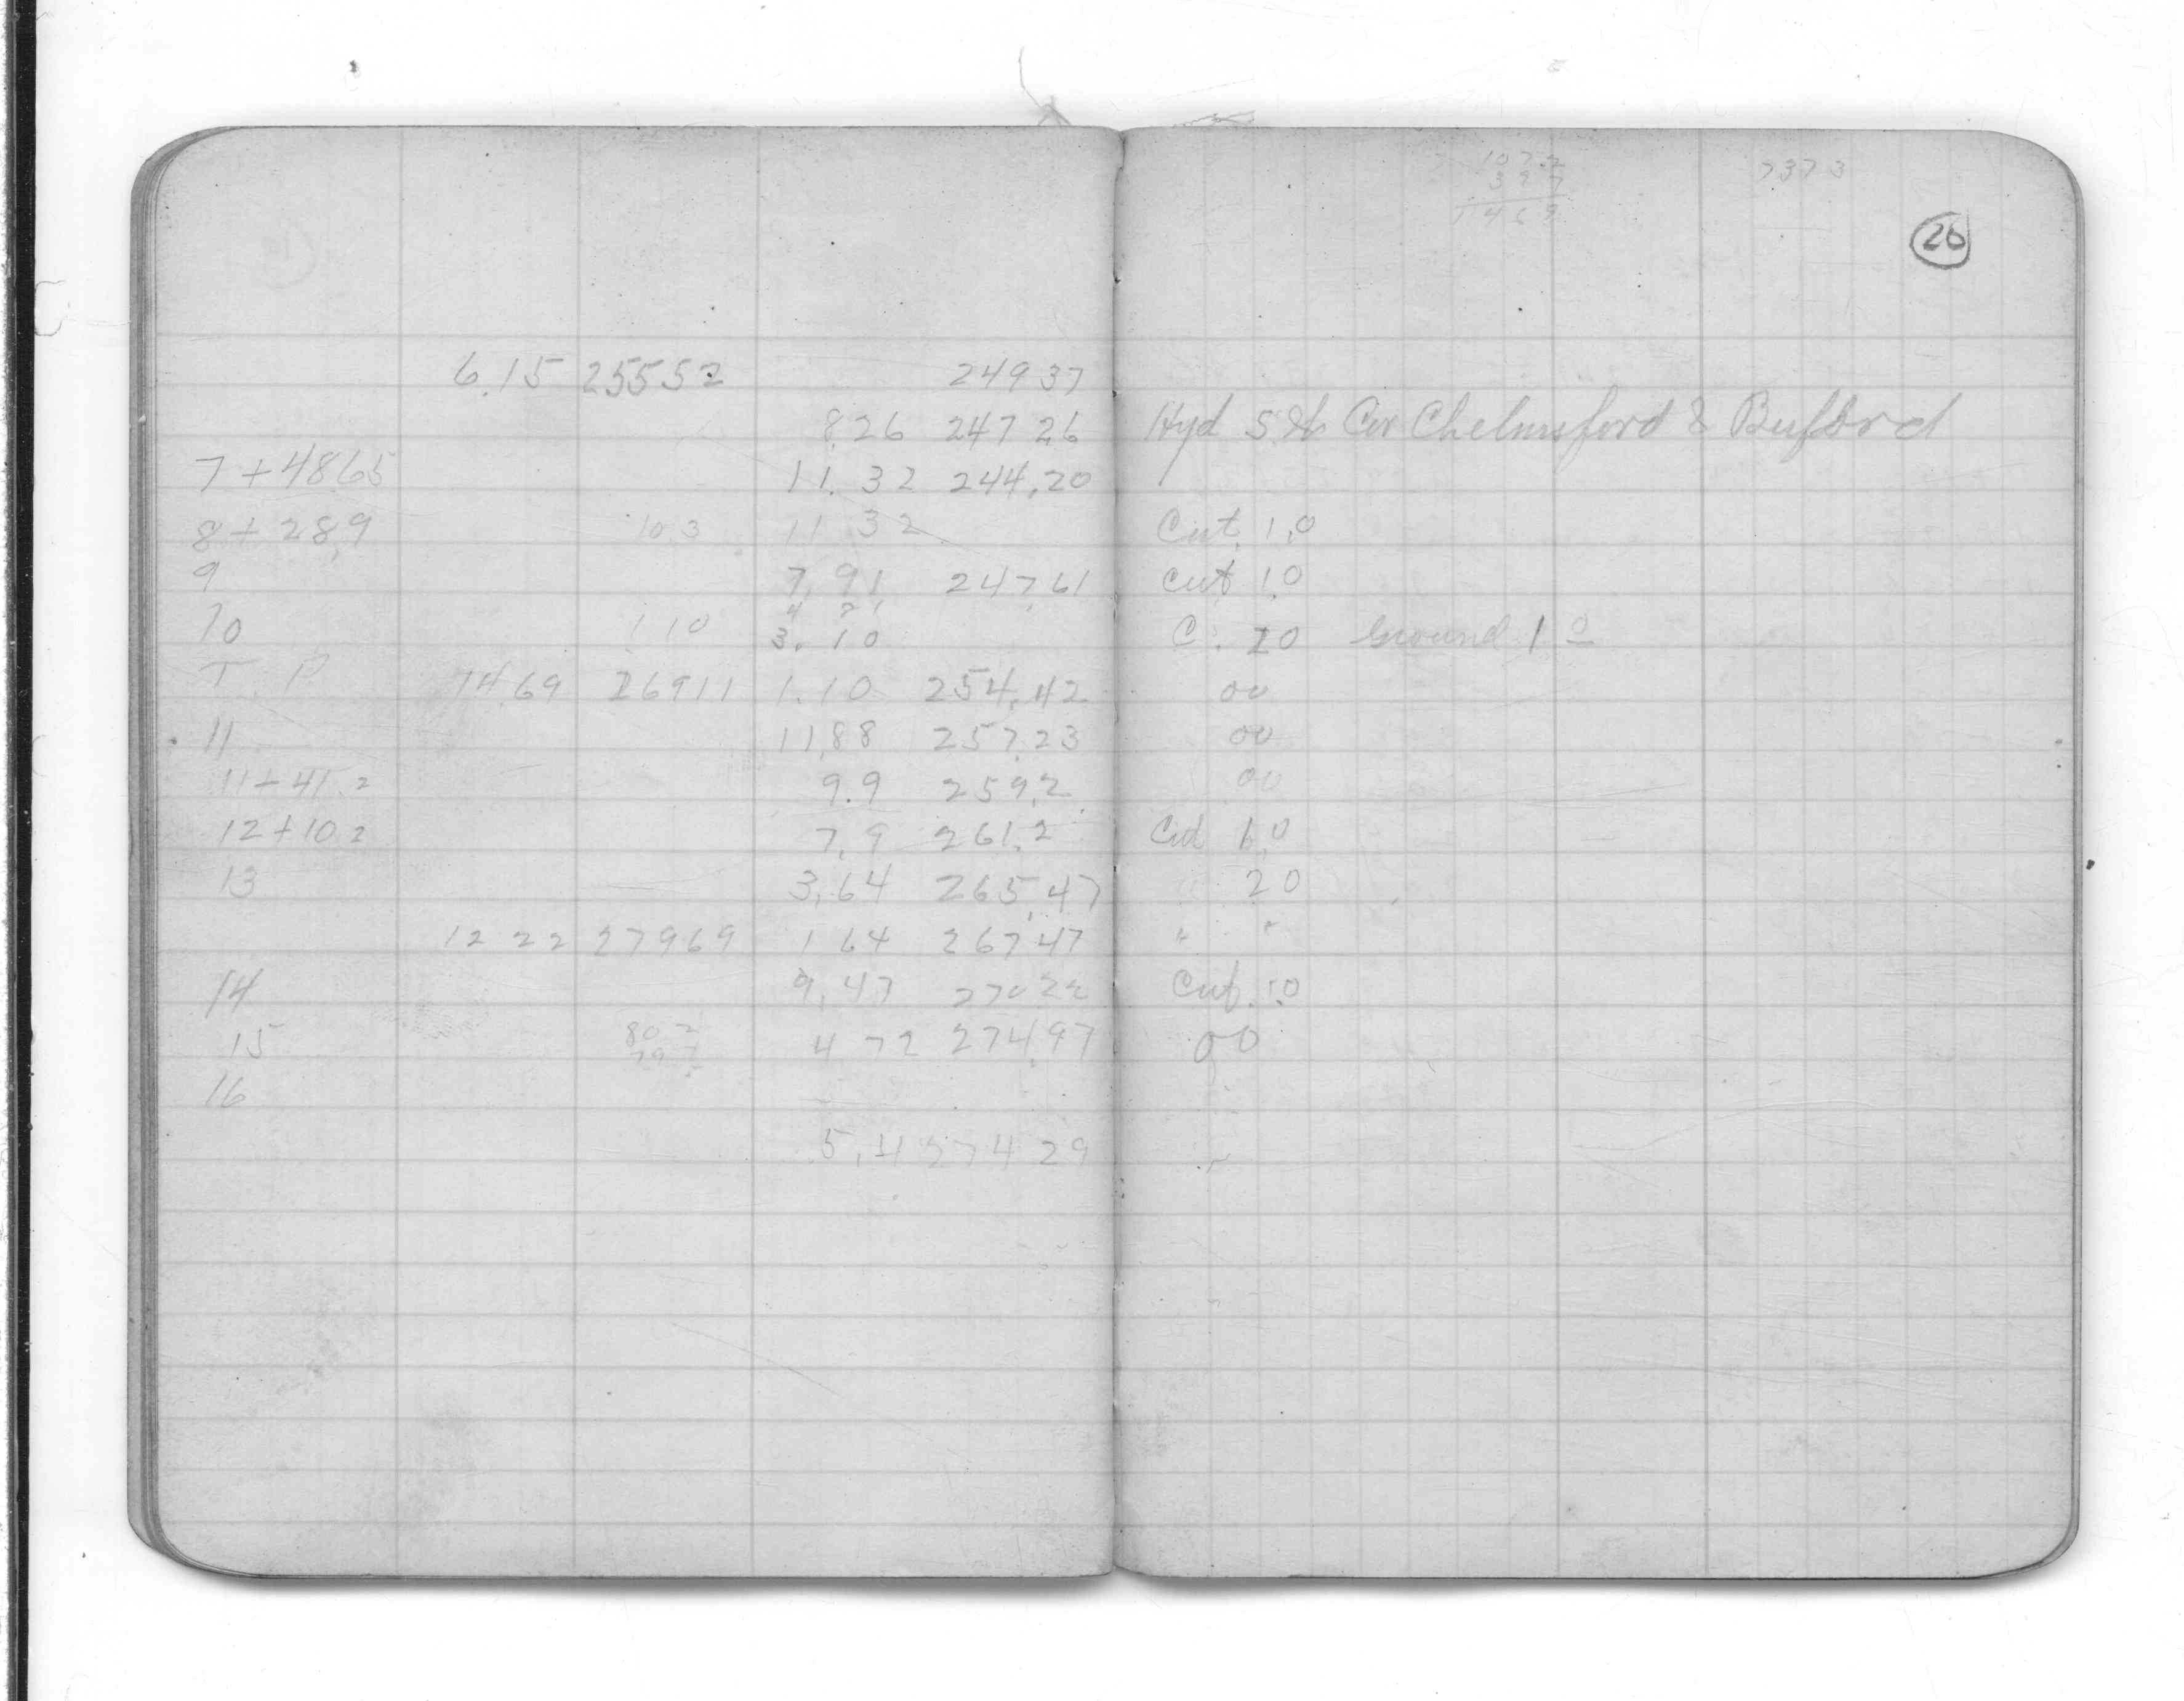 7373
26
6.15 25552 24937
8.26 247 26 Hyd S.W. Cor Chelmsford & Buford
7 + 48.65 11.32 244.20
8 + 28.9 10.3 11 32 Cut 1.0
9 7.91 247.61 cut 1.0
10 1 10 3.10 C. 20 Ground 1 0
T. P 14.69 26911 1.10 254.42 00
11 11.88 257.23 00
11 + 41.2 9.9 259.2 00
12 + 10.2 7.9 261.2 Cut 1.0
13 3.64 265.47 20
12 22 27969 1 64 267.47 " "
14 9.47 270 22 Cut 1.0
15 4 72 274.97 00
16
5.4 274 29